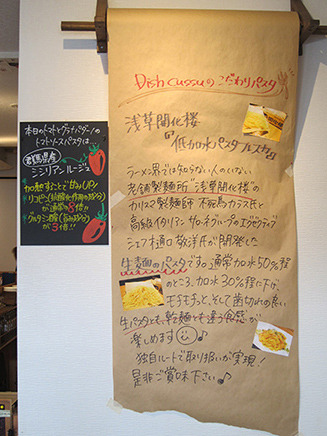 Dish cussuのこだわりパスタ
浅草開化楼
"低加水パスタフレスカ"
ラーメン界では知らない人のいない
老舗製麺所"浅草開化楼"の
カリスマ製麺師 不死鳥カラス氏と
高級イタリアン サローネグループのエグゼクティブ
シェフ樋口敬洋氏が開発した
生麺のパスタです。通常加水50%程
のところ、加水30%程に下げ、
モチモチっと、そして歯切れの良い
生パスタとも、乾麺とも違う食感が
楽しめます♪
独自ルートで取り扱いが実現!
是非ご賞味下さい♪
本日のトマトとグラナパダーノの
トマトソースパスタは
群馬県産
シシリアンルージュ
* 加熱することで旨みUP!
* リコピン(抗酸化作用の成分)
が通常の8倍!!
* グルタミン酸(旨みの成分)
が3倍!!